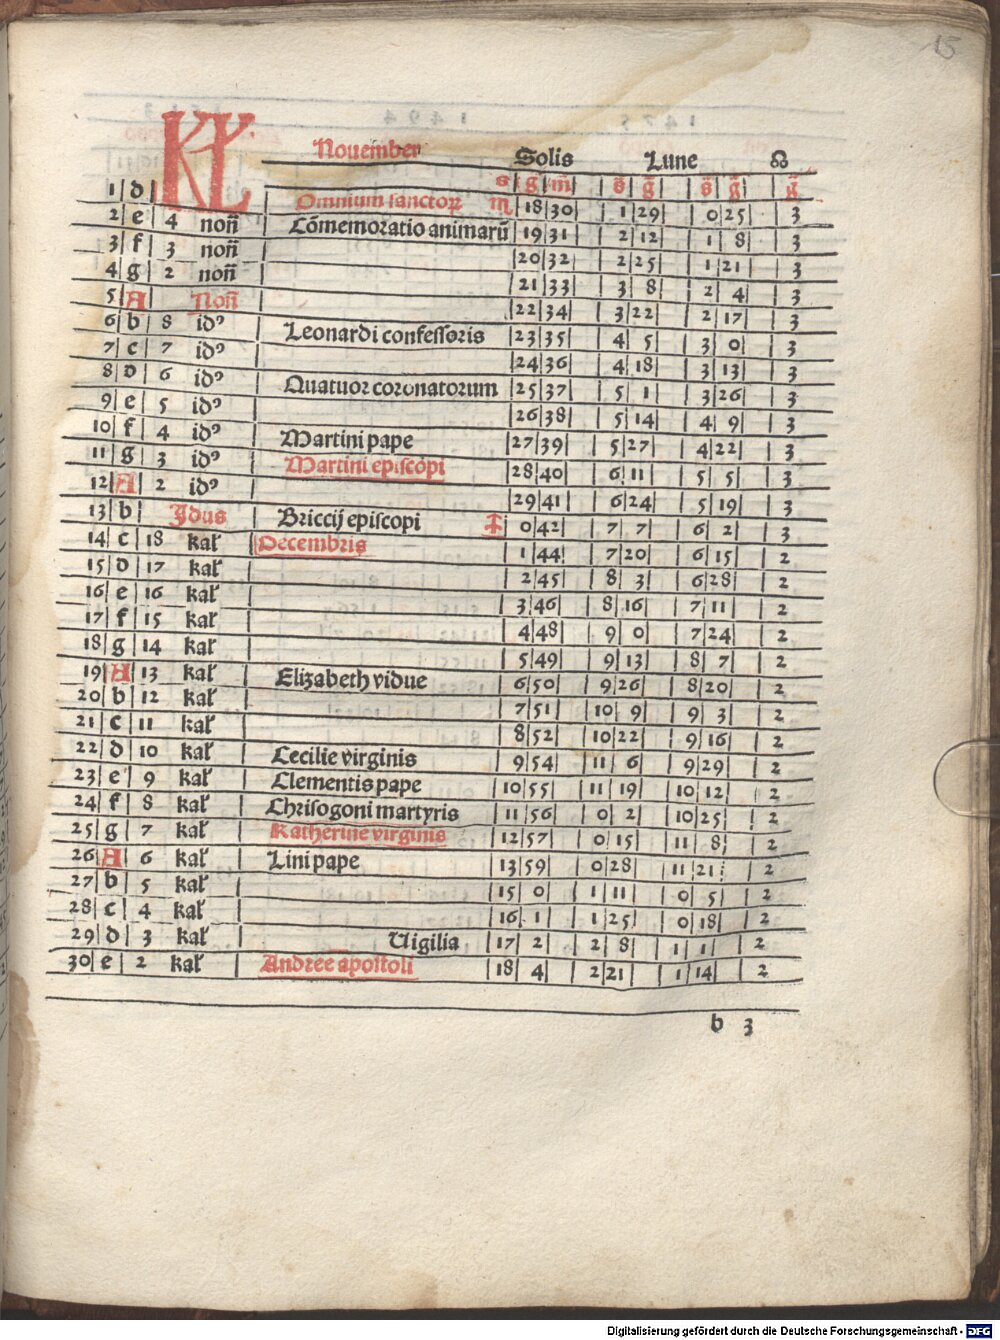 15
KL November Solis Lune ☊
s g m̄ s̄ ḡ s̄ ḡ ḡ
1 d Omnium sanctoꝝ ♏ 18 30 1 29 0 25 3
2 e 4 non̄ Cōmemoratio animarū 19 31 2 12 1 8 3
3 f 3 non̄ 20 32 2 25 1 21 3
4 g 2 non̄ 21 33 3 8 2 4 3
5 A Non̄ 22 34 3 22 2 17 3
6 b 8 idꝰ Leonardi confessoris 23 35 4 5 3 0 3
7 c 7 idꝰ 24 36 4 18 3 13 3
8 d 6 idꝰ Quatuor coronatorum 25 37 5 1 3 26 3
9 e 5 idꝰ 26 38 5 14 4 9 3
10 f 4 idꝰ Martini pape 27 39 5 27 4 22 3
11 g 3 idꝰ Martini episcopi 28 40 6 11 5 5 3
12 A 2 idꝰ 29 41 6 24 5 19 3
13 b Jdus Briccij episcopi ♐ 0 42 7 7 6 2 3
14 c 18 kał Decembris 1 44 7 20 6 15 2
15 d 17 kał 2 45 8 3 6 28 2
16 e 16 kał 3 46 8 16 7 11 2
17 f 15 kał 4 48 9 0 7 24 2
18 g 14 kał 5 49 9 13 8 7 2
19 A 13 kał Elizabeth vidue 6 50 9 26 8 20 2
20 b 12 kał 7 51 10 9 9 3 2
21 c 11 kał 8 52 10 22 9 16 2
22 d 10 kał Cecilie virginis 9 54 11 6 9 29 2
23 e 9 kał Clementis pape 10 55 11 19 10 12 2
24 f 8 kał Chrisogoni martyris 11 56 0 2 10 25 2
25 g 7 kał Katherine virginis 12 57 0 15 11 8 2
26 A 6 kał Lini pape 13 59 0 28 11 21 2
27 b 5 kał 15 0 1 11 0 5 2
28 c 4 kał 16 1 1 25 0 18 2
29 d 3 kał Uigilia 17 2 2 8 1 1 2
30 e 2 kał Andree apostoli 18 4 2 21 1 14 2
b 3
Digitalisierung gefördert durch die Deutsche Forschungsgemeinschaft - DFG